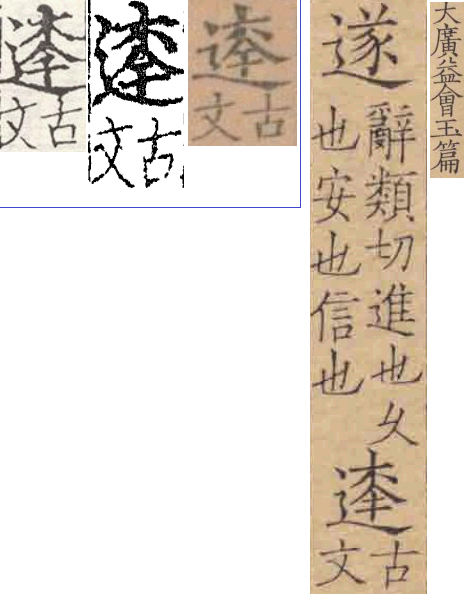 古文
古文
古文
大廣益會玉篇
遂
辭類切進也久
也安也信也
古文